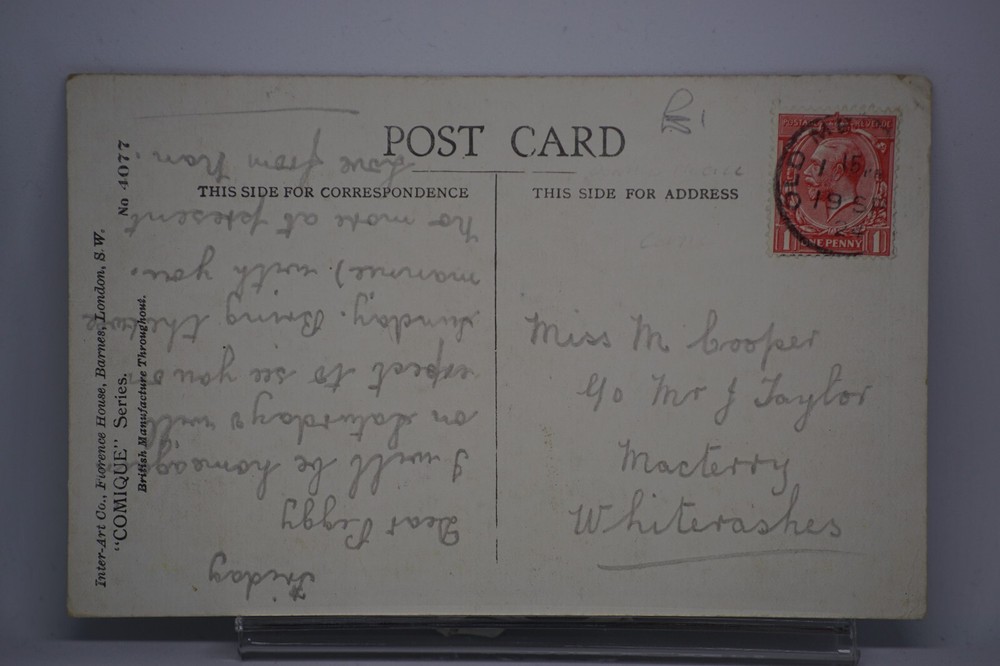 POST CARD
THIS SIDE FOR CORRESPONDENCE
THIS SIDE FOR ADDRESS
Friday
Dear Peggy
I will be home again
on Saturday & will
expect to see you on
Sunday. Bring the
mannie) with you.
No more at present
Love from Nan
Miss M Cooper
c/o Mr J Taylor
Macterry
Whiterashes
OLD ME
1 15 PM
19 SP
22
ONE PENNY
1 1
No 4077
Inter-Art Co., Florence House, Barnes, London, S.W.
"COMIQUE" Series.
British Manufacture Throughout.